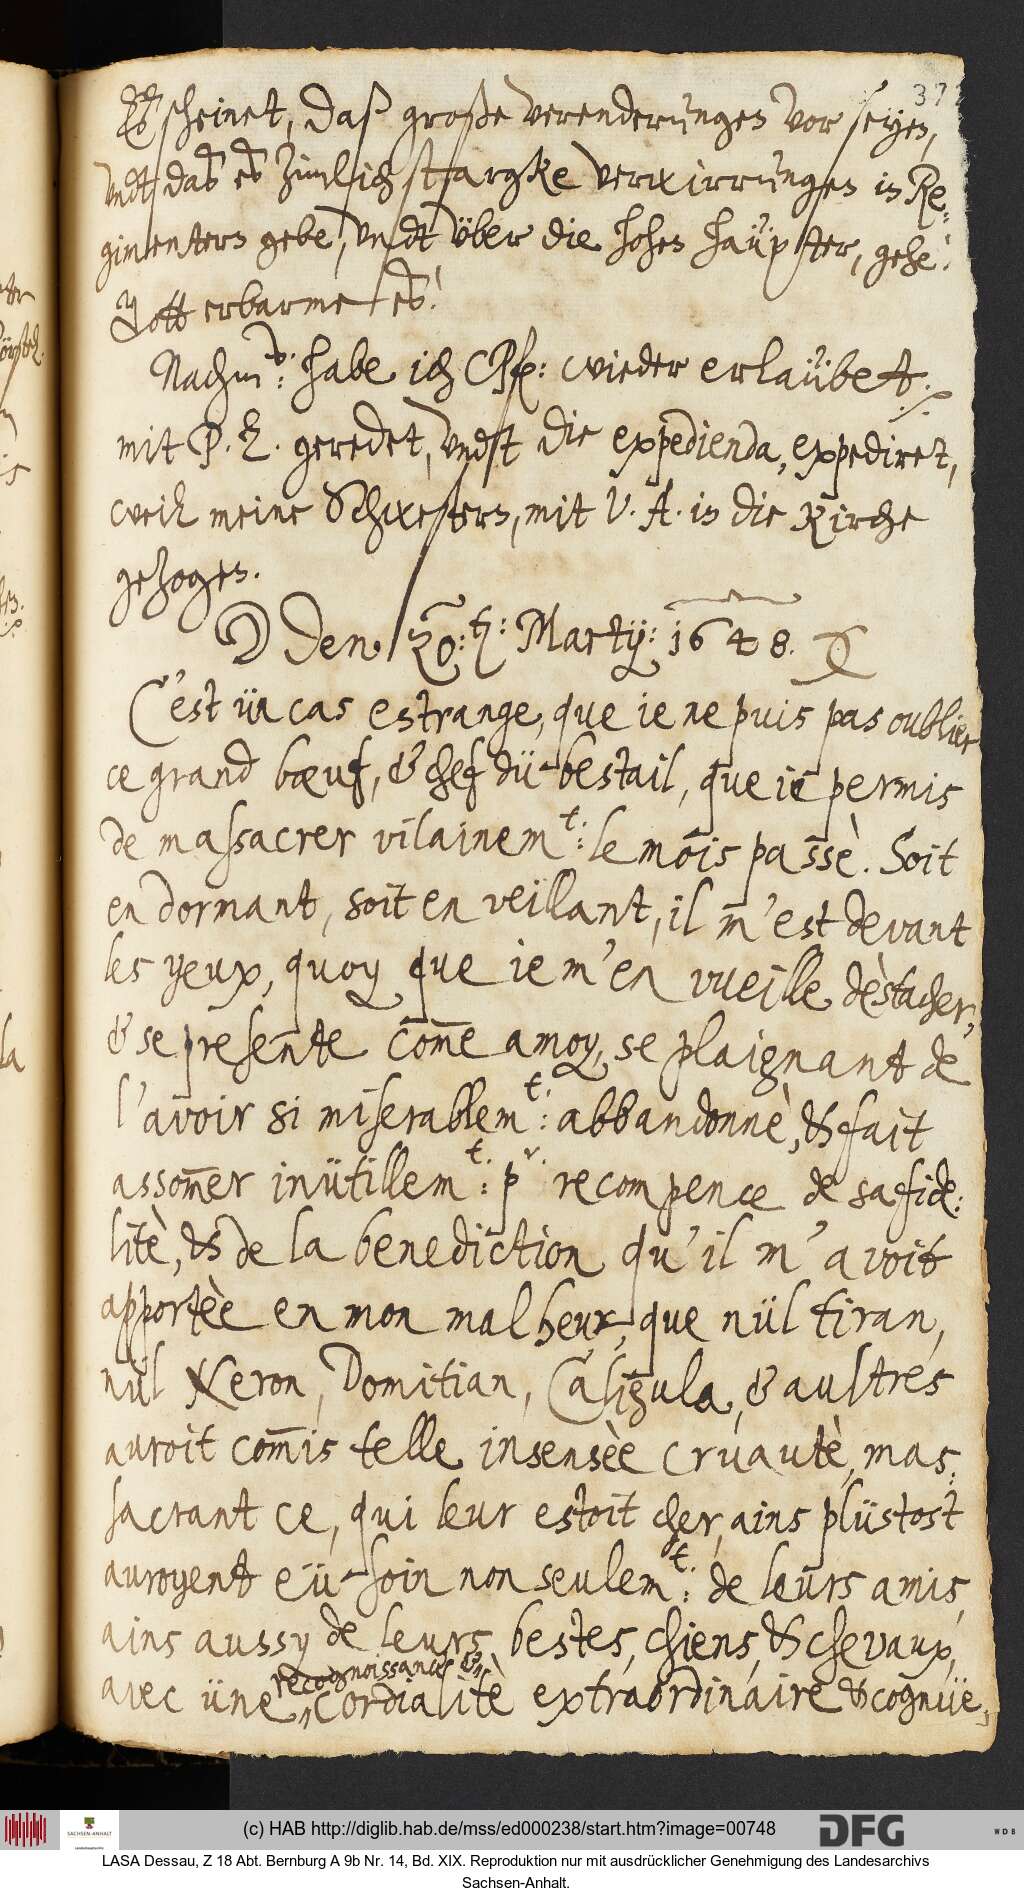 37
Es scheinet, daß große verenderungen vor seyen,
undt daß es zimlich starcke verwirrungen in Re-
gimentern gebe, undt über die hohen häupter, gehe!
Gott erbarme es!
Nachm: habe ich wieder erlaübet.
mit P. H. geredet, undt die expedienda, expediret,
weil meine Schwestern, mit V. A. in die Kirche
gezogen.
☽ Den 20: Martij: 1648.
C'est ün cas estrange, que ie ne puis pas oublier
ce grand bœuf, & chef dü bestail, que ie permis
de massacrer vilainem:t le mois passè. Soit
en dormant, soit en veillant, il m'est devant
les yeux, quoy que ie m'en vueille dèstacher,
& se presente com̄e a moy, se plaignant de
l'avoir si miserablem:t abbandonnè, & fait
assom̄er inütillem:t pr recompence de sa fide:
litè, & de la benediction qu'il m'avoit
apportèe en mon malheur, que nül tiran,
nül Neron, Domitian, Caligula, & aultres
auroit com̄is telle insensèe cruautè, mas-
sacrant ce, qui leur estoit cher, ains plüstost
auroyent eü soin non seulem:t de leurs amis,
ains aussy de leurs bestes, chiens, & chevaux,
recognoissance &
avec üne cordialitè extraordinaire & cognüe,
la
(c) HAB http://diglib.hab.de/mss/ed000238/start.htm?image=00748
SACHSEN-ANHALT
DFG
W D B
LASA Dessau, Z 18 Abt. Bernburg A 9b Nr. 14, Bd. XIX. Reproduktion nur mit ausdrücklicher Genehmigung des Landesarchivs
Sachsen-Anhalt.